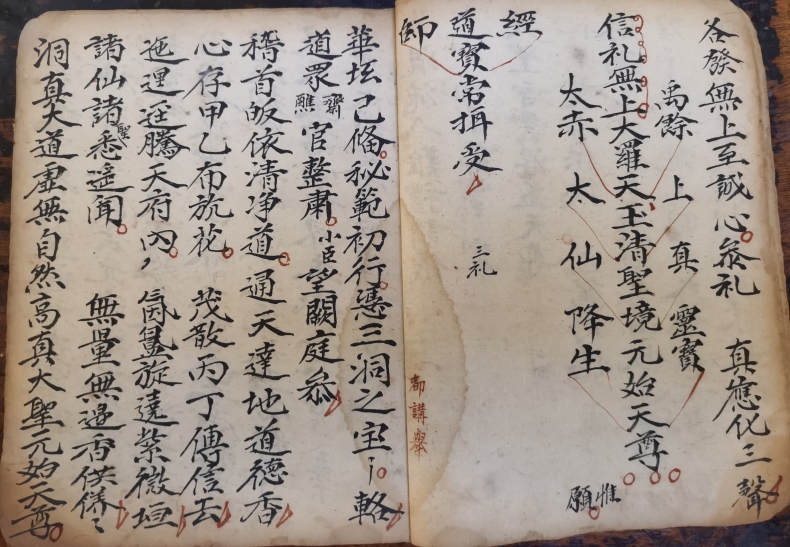 各發無上至誠心叅礼 真應化三聲
禹餘 上真 靈寶
信礼無上大羅天玉清聖境元始天尊 惟願
太赤 太仙 降生
經
道寶常拥受 三礼
師
都講舉
華坛已俻秘範初行憑三洞之宝輅
道眾齋醮官整肅小臣望闕庭叅
稽首皈依清净道通天達地道德香
心存甲乙布旂花 茂散丙丁傳信去
迤逦逕騰天府內 氤氳旋遶紫微垣
諸仙諸聖悉遥聞 無量無邊香供俻
洞真大道虛無自然高真大聖元始天尊